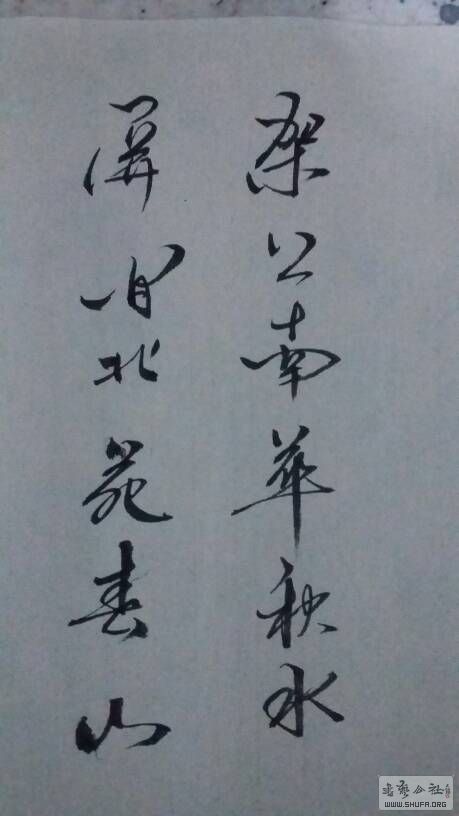 架上南華秋水
屏間北苑春山
書藝公社
WWW.SHUFA.ORG